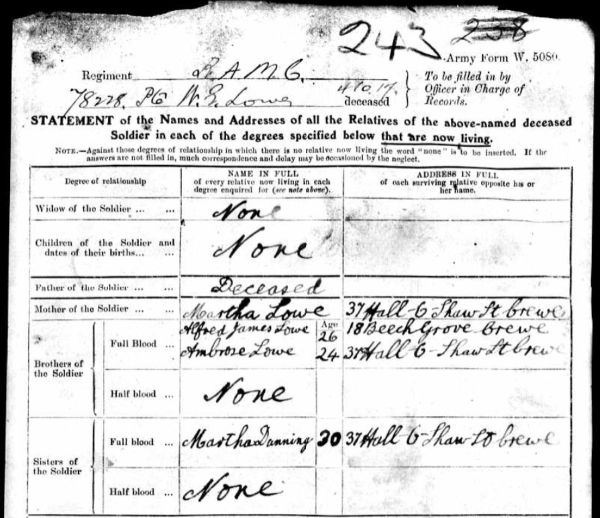 243 258
Army Form W. 5080.
Regiment R.A.M.C.
To be filled in by
Officer in Charge of
Records.
78228. Pte W. E. Lowe 4.10.17. deceased
STATEMENT of the Names and Addresses of all the Relatives of the above-named deceased
Soldier in each of the degrees specified below that are now living.
NOTE.—Against those degrees of relationship in which there is no relative now living the word "none" is to be inserted. If the
answers are not filled in, much correspondence and delay may be occasioned by the neglect.
Degree of relationship
NAME IN FULL
of every relative now living in each
degree enquired for (see note above).
ADDRESS IN FULL
of each surviving relative opposite his or
her name.
Widow of the Soldier ... ... None
Children of the Soldier and
dates of their births... ... None
Father of the Soldier ... ... Deceased
Mother of the Soldier ... ... Martha Lowe 37 Hall-O-Shaw St Crewe
Brothers of
the Soldier
Full Blood ...
Age
Alfred James Lowe 26 18 Beech Grove Crewe
Ambrose Lowe 24 37 Hall-O-Shaw St Crewe
Half blood ... None
Sisters of
the Soldier
Full blood ... Martha Danning 30 37 Hall-O-Shaw St Crewe
Half blood ... None